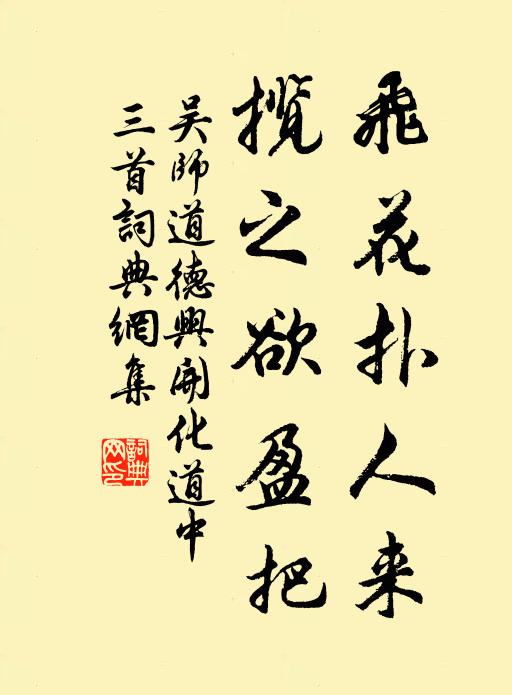 飛花扑人来
揽之欲盈把
吴師道德興開化道中
三首詞典網集
詞典
网印